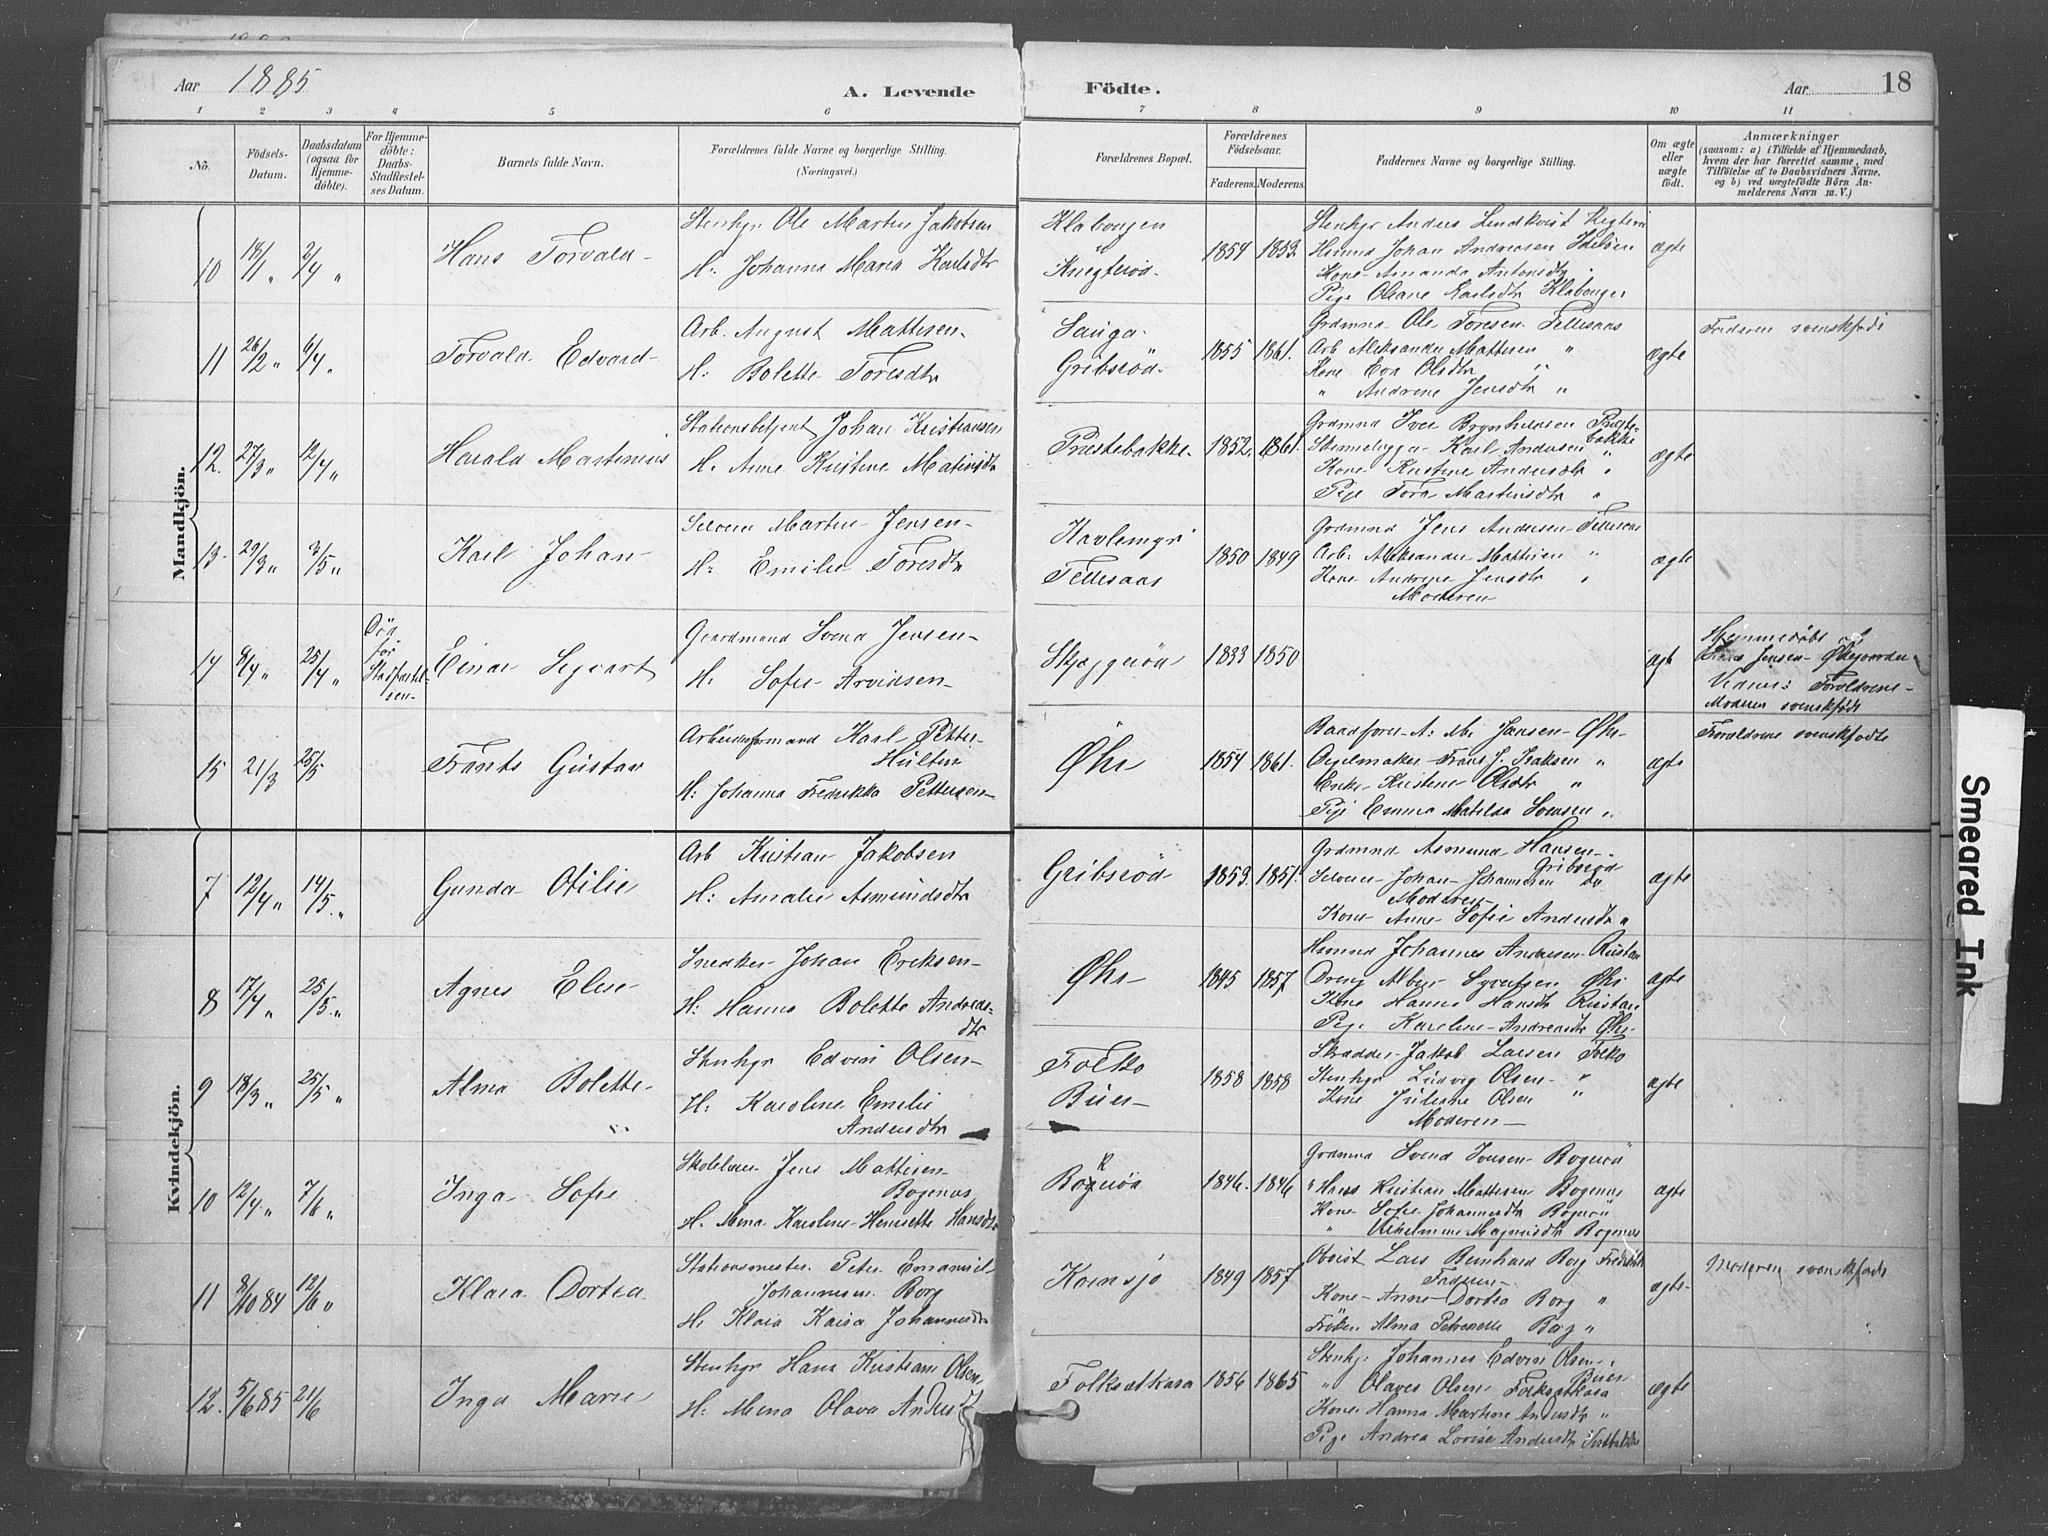 Aar 1885
A. Levende
Födte.
Aar
18
1 2 3 4 5 6 7 8 9 10 11
No.
Födsels-
Datum.
Daabsdatum
(ogsaa for
Hjemme-
döbte).
For Hjemme-
döbte:
Daabs-
Stadfæstel-
ses Datum.
Barnets fulde Navn.
Forældrenes fulde Navne og borgerlige Stilling.
(Næringsvei.)
Forældrenes Bopæl.
Forældrenes
Födselsaar.
Faderens. Moderens.
Faddernes Navne og borgerlige Stilling.
Om ægte
eller
uægte
födt.
Anmærkninger
(saasom: a) i Tilfælde af Hjemmedaab,
hvem der har forrettet samme, med
Tilföielse af to Daabsvidners Navne,
og b) ved uægtefödte Börn An-
melderens Navn m. V.)
Mandkjön.
10 18/1 " 2/4 "
Hans Torvald
Stenhgr Ole Martin Jakobsen
H: Johanna Maria Karlsdtr
Klabongen
Knegteröd
1854 1853
Stenhgr Anders Lindkvist
Johan Andreassen
Kone Amanda Antonsdtr
Pige Oleane Karlsdtr Klabongen
ægte
11 26/2 " 6/4 "
Torvald Edvard
Arb. August Mattisen
H: Bolette Toresdtr
Sauga
Gribsröd
1855 1861.
Grdmnd Ole Toresen Tellesaas
Arb Aleksander Mattisen "
Kone Eva Olsdtr "
" Andrine Jensdtr "
ægte
Faderen svenskfödt
12. 27/3 " 12/4 "
Harald Martinius
Stationsbetjent Johan Kristiansen
H. Anne Kristine
Præstebakke
1852. 1861.
Grdmnd Iver Brynhildsen Præste-
bakke
Skinnelægger Karl Andersen "
Kone Kristine Andersdtr "
Pige Tora Martinsdtr "
ægte
13. 29/3 " 3/5 "
Karl Johan
Selveier Martin Jensen
H: Emilie Toresdtr
Kavlemyr
Tellesaas
1850 1849
Grdmnd Jens Andersen Tellesaas
Arb. Aleksander Mattisen "
Kone Andrine Jensdtr "
Moderen
ægte
14 8/4 " 25/4 "
Död
för
Stadfæstel-
sen
Einar Sigvart
Gaardmand Svend Jensen
H: Sofie Arvidsen
Skjeggeröd
1833 1850
ægte
Hjemmedöbt af
Jensen
Vidner: Forældrene
Moderen svenskfödt
15 21/3 25/5
Frants Gustav
Arbeidsformand Karl Petter
Hultin
H. Johanna Fredrikka Pettersen
Öhr
1854 1861.
Baadförer A. M. Jansen Öhr
Frans J. Isaksen "
Enke Kristine Olsdtr "
Pige Emma Matilda Svensen "
ægte
Forældrene svenskfödte
Kvindekjön.
7 12/4 " 14/5. "
Gunda Otilie
Arb Kristian Jakobsen
H: Amalie Asmundsdtr
Gribsröd
1853. 1851.
Grdmnd Asmund Hansen
Gribsröd
Selveier Johan Johannesen Do
Moderen
Kone Anne Sofie Andersdtr "
ægte
8 17/4 " 25/5 "
Agnes Elise
Snedker Johan Eriksen
H: Hanna Bolette Andreas-
dtr
Öhr
1845 1857
Husmnd Johannes Andersen
Dreng Albin
Kone Hanna Hansdtr
Pige Karoline Andreasdtr Öhr
ægte
9 18/3 " 25/5 "
Alma Bolette
Stenhgr Edvin Olsen
H: Karoline Emilie
Andersdtr
Folko
Buer
1858 1858
Skrædder Jakob Larsen Folko
Stenhgr Ludvig Olsen "
Kone Juliane Olsen "
Moderen
ægte
10 12/4 " 7/6 "
Inga Sofie
Skolelærer Jens Mattisen
Bogenæs
H. Mina Karoline Henriette Hansdtr
Bogeröd
1846. 1846
Grdmnd Svend Iversen Bogeröd
" Hans Kristian Mattisen Bogenæs
Kone Sofie Johannesdtr Bogeröd
" Vilhelmine Magnusdtr Bogenæs
ægte
11 8/10 84 12/6 "
Klara Dortea
Stationsmester Peter Emanuel
Johannesen Borg
H. Klara Kaisa Johannesdtr
Kornsjö
1849 1857
Lars Bernhard Borg
Faderen
Kone Anne Dortea Borg "
Fröken Alma Petronelle Borg "
ægte
Moderen svenskfödt
12. 5/6 85 21/6
Inga Marie
Stenhgr Hans Kristian Olsen
H. Mina Olava
Folksatkasa
1856 1865
Stenhgr Johannes Edvin Olsen
Buer
" Olaves Olsen Folksatkasa
Kone Hanna Martine Andersdtr "
Pige Andrea Lovise Andersdtr
ægte
Smeared Ink